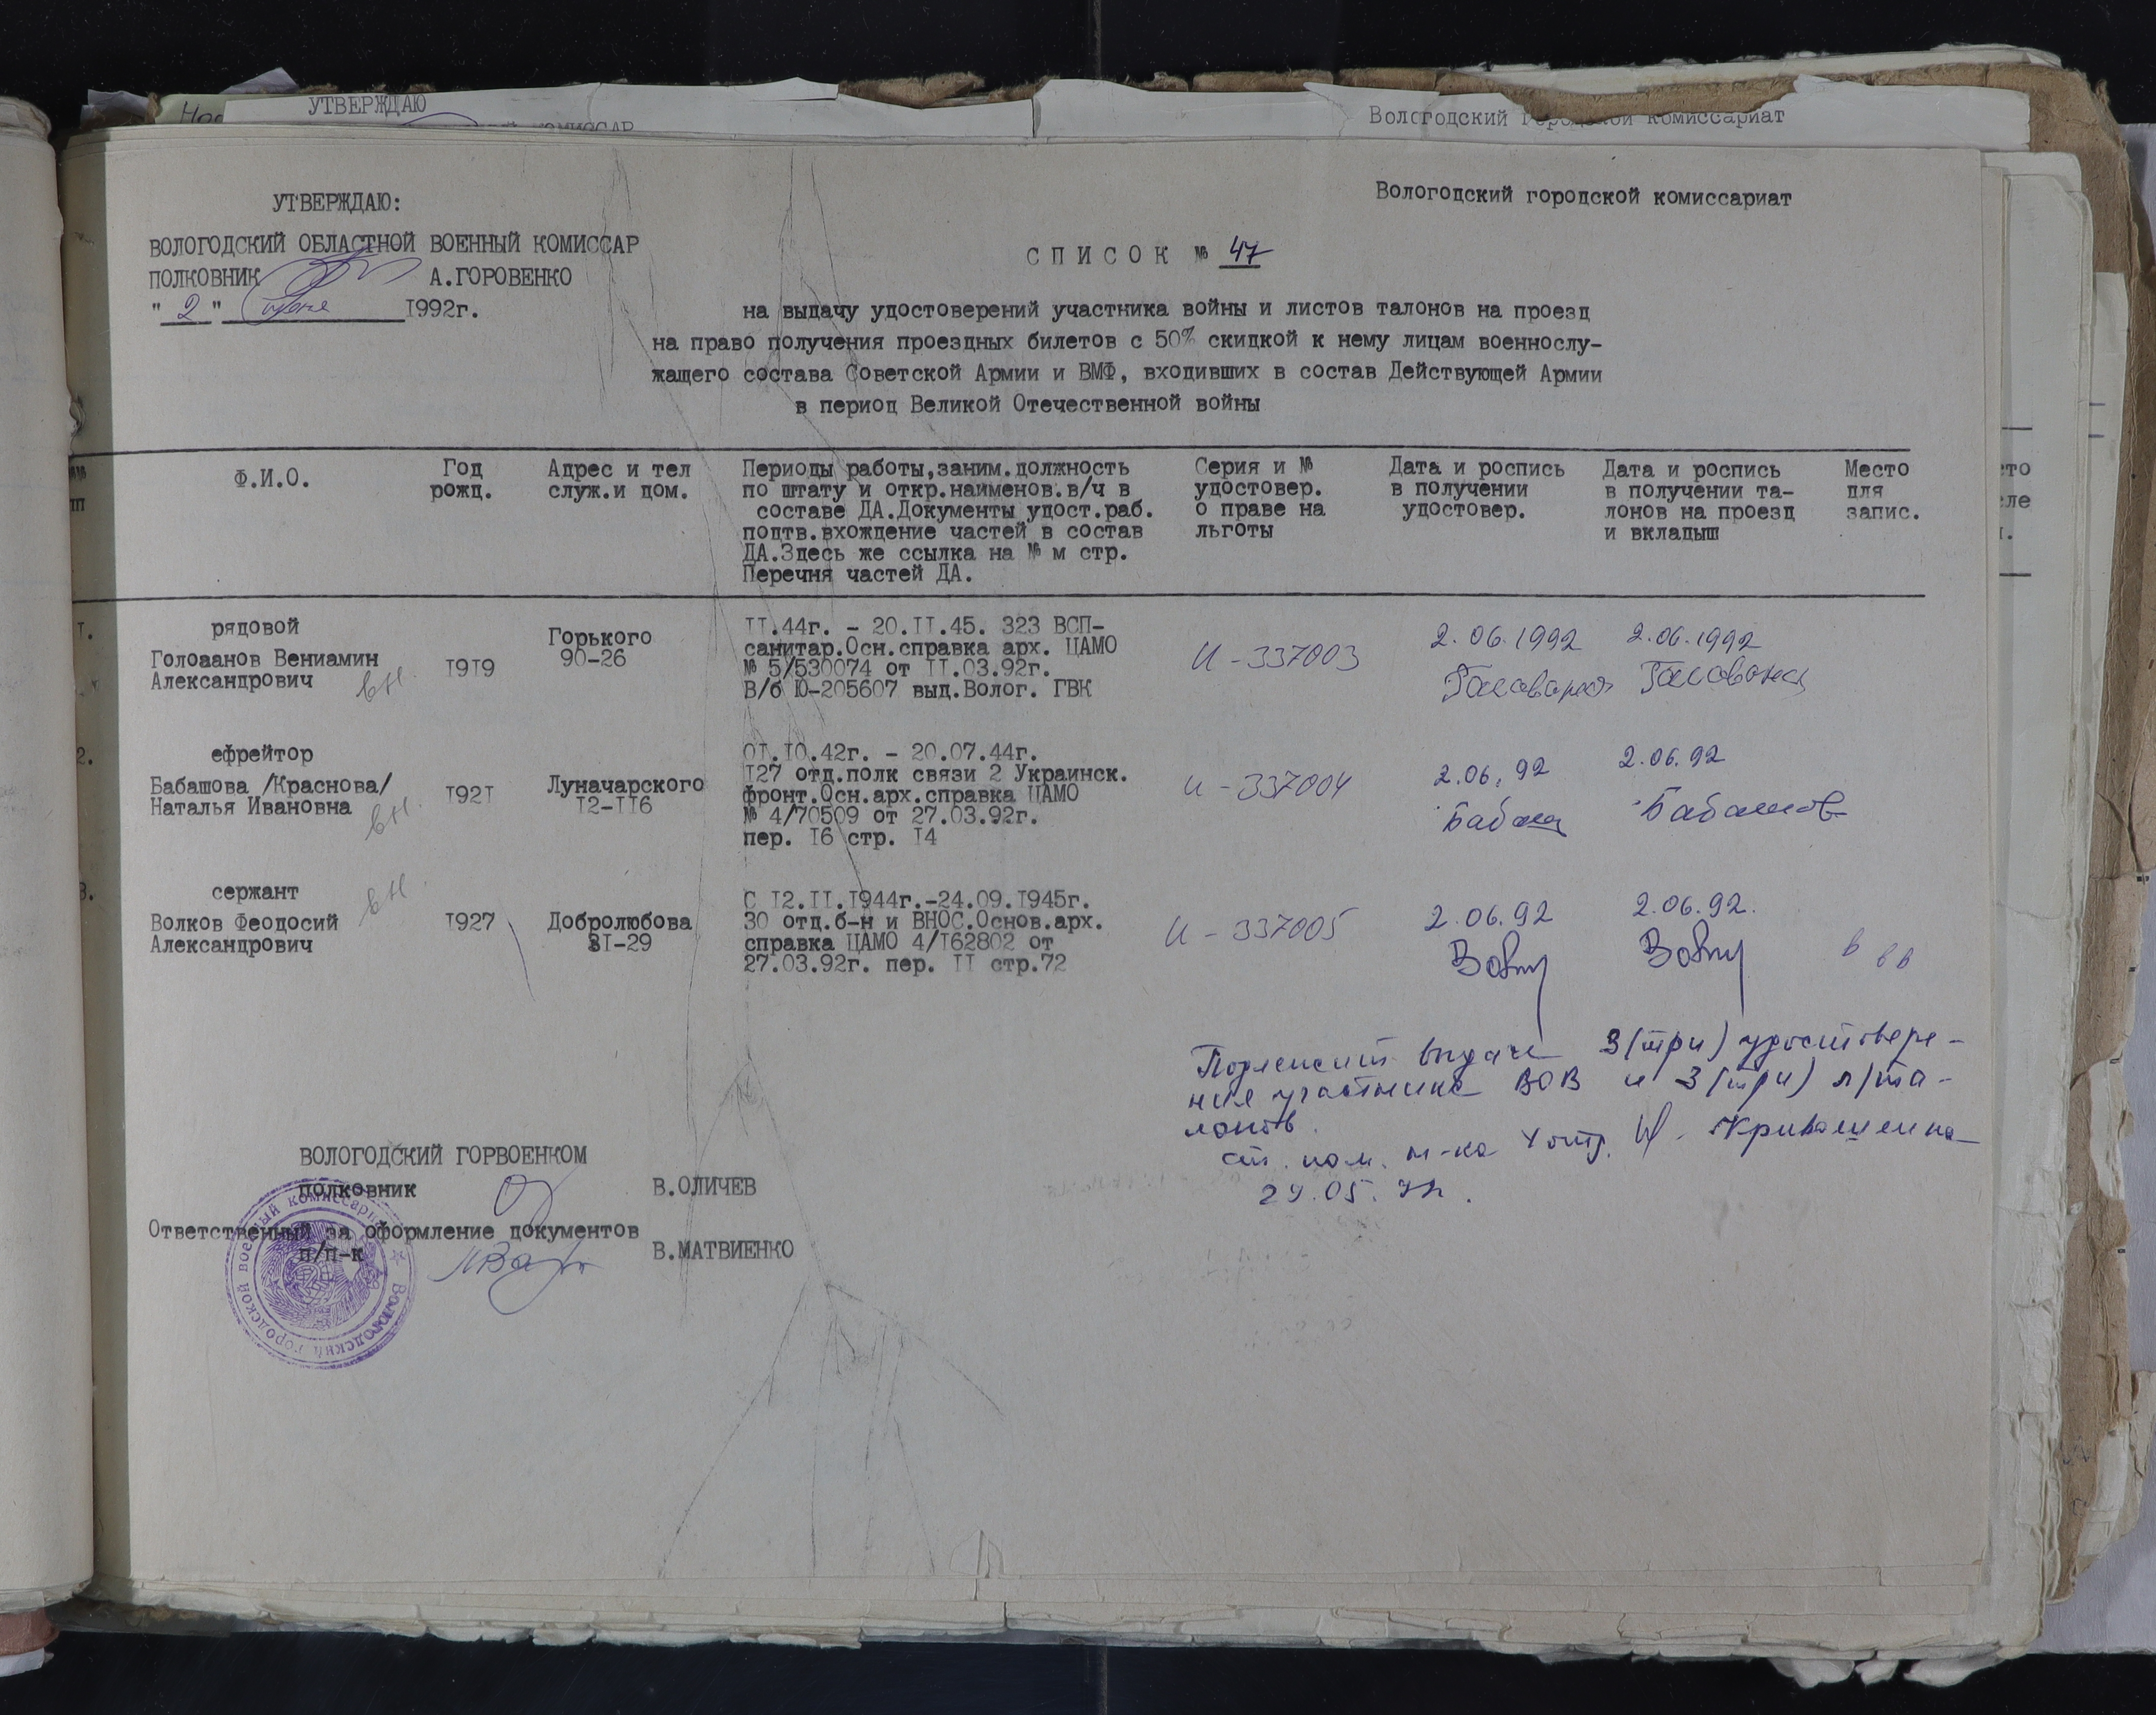 УТВЕРЖДАЮ
Вологодский городской комиссариат
УТВЕРЖДАЮ:
Вологодский городской комиссариат
ВОЛОГОДСКИЙ ОБЛАСТНОЙ ВОЕННЫЙ КОМИССАР
ПОЛКОВНИК А.ГОРОВЕНКО
" 2 " июня 1992г.
С П И С О К № 47
на выдачу удостоверений участника войны и листов талонов на проезд
на право получения проездных билетов с 50% скидкой к нему лицам военнослу-
жащего состава Советской Армии и ВМФ, входивших в состав Действующей Армии
в период Великой Отечественной войны
№№
пп
Ф.И.О.
Год
рожд.
Адрес и тел
служ.и дом.
Периоды работы,заним.должность
по штату и откр.наименов.в/ч в
составе ДА.Документы удост.раб.
подтв.вхождение частей в состав
ДА.Здесь же ссылка на № м стр.
Перечня частей ДА.
Серия и №
удостовер.
о праве на
льготы
Дата и роспись
в получении
удостовер.
Дата и роспись
в получении та-
лонов на проезд
и вкладыш
Место
для
запис.
I.
рядовой
Голоаанов Вениамин
Александрович
вн.
I9I9
Горького
90-26
II.44г. - 20.II.45. 323 ВСП-
санитар.Осн.справка арх. ЦАМО
№ 5/530074 от II.03.92г.
В/б Ю-205607 выд.Волог. ГВК
И - 337003
2.06.1992
Голованов
2.06.1992
Голованов
2.
ефрейтор
Бабашова /Краснова/
Наталья Ивановна
вн.
I92I
Луначарского
I2-II6
OI.IO.42г. - 20.07.44г.
I27 отд.полк связи 2 Украинск.
фронт.Осн.арх.справка ЦАМО
№ 4/70509 от 27.03.92г.
пер. I6 стр. I4
И - 337004
2.06.92
Бабаш
2.06.92
Бабашов
3.
сержант
Волков Феодосий
Александрович
вн.
I927
Добролюбова
3I-29
С I2.II.I944г.-24.09.I945г.
30 отд.б-н и ВНОС.Основ.арх.
справка ЦАМО 4/I62802 от
27.03.92г. пер. II стр.72
И - 337005
2.06.92
2.06.92.
в в в
Подлежит выдаче 3(три) удостовере-
ния участника ВОВ и 3(три) л/та-
лонов.
ст. пом. н-ка Кривошеина
29.05.92г.
ВОЛОГОДСКИЙ ГОРВОЕНКОМ
полковник В.ОЛИЧЕВ
Ответственный за оформление документов
п/п-к В.МАТВИЕНКО
Вологодский городской военный комиссариат